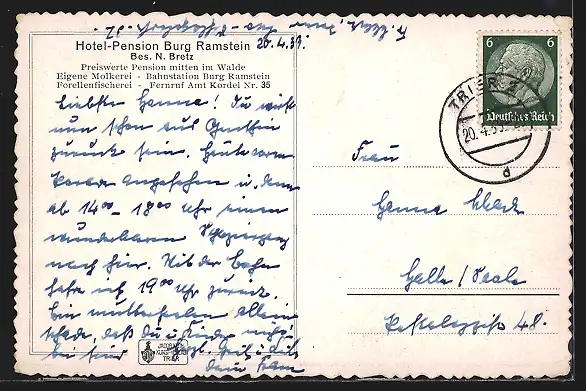 20.4.39.
Hotel-Pension Burg Ramstein
Bes. N. Bretz
Preiswerte Pension mitten im Walde
Eigene Molkerei - Bahnstation Burg Ramstein
Forellenfischerei - Fernruf Amt Kordel Nr. 35
Liebste Hanna! Du wirst
nun schon aus
zurück sein. Heute vorm.
Parade angesehen u. dann
ab 14 00 - 18 00 Uhr einen
wunderbaren Spaziergang
nach hier. Mit der Bahn
fahre ich 19 00 Uhr zurück.
Bin mutterseelen allein
schade, daß du u. Kinder nicht
bei sein
dein Franz
6 6
Deutsches Reich
TRIER
20.4.39
d
Frau
Hanna
Halle / Saale
48.
TRIER